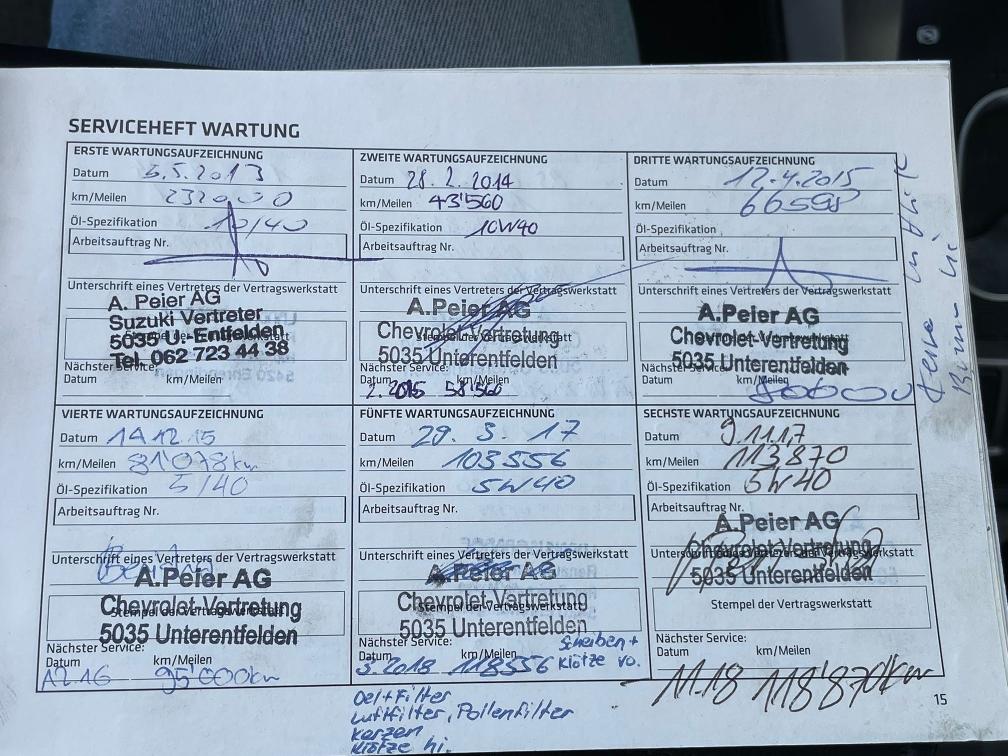 SERVICEHEFT WARTUNG
ERSTE WARTUNGSAUFZEICHNUNG
Datum 5.5.2013
km/Meilen
Öl-Spezifikation 10/40
Arbeitsauftrag Nr.
Unterschrift eines Vertreters der Vertragswerkstatt
A. Peier AG
Suzuki Vertreter
5035 U.-Entfelden
Tel. 062 723 44 38
Nächster Service:
Datum km/Meilen
ZWEITE WARTUNGSAUFZEICHNUNG
Datum 28.2.2014
km/Meilen 43'560
Öl-Spezifikation 10W40
Arbeitsauftrag Nr.
Unterschrift eines Vertreters der Vertragswerkstatt
A.Peier AG
Chevrolet-Vertretung
5035 Unterentfelden
Nächster Service:
Datum km/Meilen
2.2015 58'560
DRITTE WARTUNGSAUFZEICHNUNG
Datum 12.4.2015
km/Meilen 66598
Öl-Spezifikation
Arbeitsauftrag Nr.
Unterschrift eines Vertreters der Vertragswerkstatt
A.Peier AG
Chevrolet-Vertretung
5035 Unterentfelden
Nächster Service:
Datum km/Meilen
80000
VIERTE WARTUNGSAUFZEICHNUNG
Datum 14.12.15
km/Meilen 81'078km
Öl-Spezifikation 5/40
Arbeitsauftrag Nr.
Unterschrift eines Vertreters der Vertragswerkstatt
A.Peier AG
Chevrolet-Vertretung
Stempel der Vertragswerkstatt
5035 Unterentfelden
Nächster Service:
Datum km/Meilen
12.16 95'000km
FÜNFTE WARTUNGSAUFZEICHNUNG
Datum 29.3.17
km/Meilen 103556
Öl-Spezifikation 5W40
Arbeitsauftrag Nr.
Unterschrift eines Vertreters der Vertragswerkstatt
A.Peier AG
Chevrolet-Vertretung
Stempel der Vertragswerkstatt
5035 Unterentfelden
Nächster Service:
Datum km/Meilen
3.2018 118556
Scheiben +
Klötze vo.
Oel+Filter
Luftfilter, Pollenfilter
Kerzen
Klötze hi.
SECHSTE WARTUNGSAUFZEICHNUNG
Datum 9.11.17
km/Meilen 113870
Öl-Spezifikation 5W40
Arbeitsauftrag Nr.
A.Peier AG
Unterschrift eines Vertreters der Vertragswerkstatt
Chevrolet-Vertretung
5035 Unterentfelden
Stempel der Vertragswerkstatt
Nächster Service:
Datum km/Meilen
11.18 118'870km
15